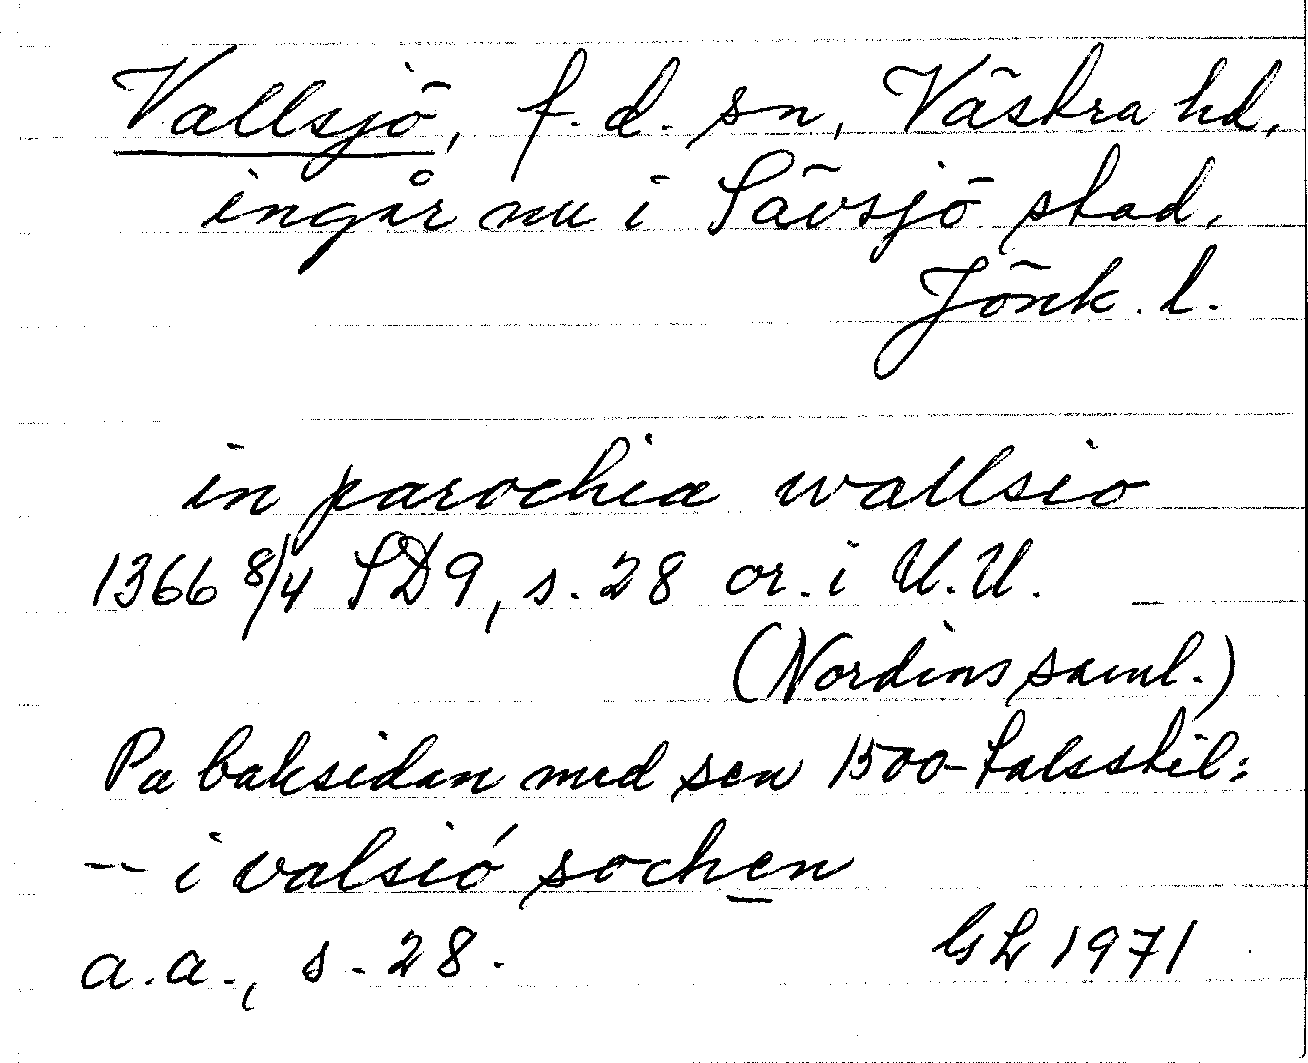 Vallsjö, f.d. sn, Västra hd,
ingår nu i Sävsjö stad.
Jönk. l.
in parochia wallsio
1366 8/4 SD9, s. 28 or. i U.U.
(Nordins saml.)
Pa baksidan med sen 1500-talsstil:
-- i valsió sochen
a.a., s. 28. GL 1971